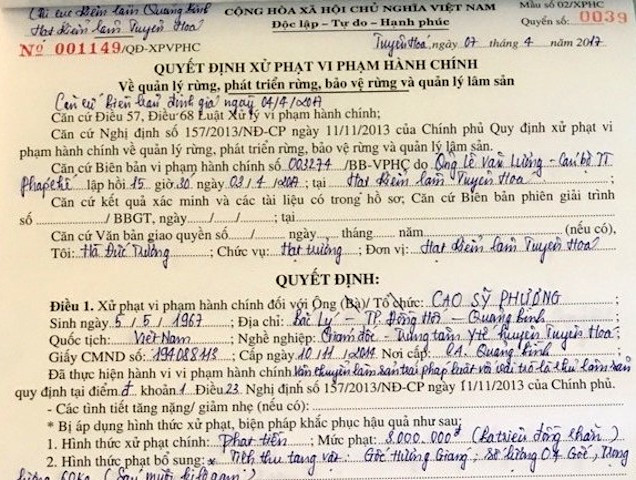 Chi cục Kiểm lâm Quảng Bình
CỘNG HÒA XÃ HỘI CHỦ NGHĨA VIỆT NAM
Mẫu số 02/XPHC
Hạt Kiểm lâm Tuyên Hoá
Độc lập - Tự do - Hạnh phúc
Quyển số: 0039
Nº 001149/QĐ-XPVPHC
Tuyên Hoá, ngày 07 tháng 4 năm 2017
QUYẾT ĐỊNH XỬ PHẠT VI PHẠM HÀNH CHÍNH
Về quản lý rừng, phát triển rừng, bảo vệ rừng và quản lý lâm sản
Căn cứ biên bản định giá ngày 04/4/2017
Căn cứ Điều 57, Điều 68 Luật Xử lý vi phạm hành chính;
Căn cứ Nghị định số 157/2013/NĐ-CP ngày 11/11/2013 của Chính phủ Quy định xử phạt vi
phạm hành chính về quản lý rừng, phát triển rừng, bảo vệ rừng và quản lý lâm sản.
Căn cứ Biên bản vi phạm hành chính số 003274 /BB-VPHC do Ông Lê Văn Lương - Cán bộ TT
Pháp chế lập hồi 15 giờ 30 ngày 03/4/2017; tại Hạt Kiểm lâm Tuyên Hoá
Căn cứ kết quả xác minh và các tài liệu có trong hồ sơ; Căn cứ Biên bản phiên giải trình
số / BBGT, ngày / / ; tại
Căn cứ Văn bản giao quyền số / ngày tháng năm (nếu có),
Tôi: Hà Đức Trường ; Chức vụ: Hạt trưởng ; Đơn vị: Hạt Kiểm lâm Tuyên Hoá
QUYẾT ĐỊNH:
Điều 1. Xử phạt vi phạm hành chính đối với Ông (Bà)/ Tổ chức: CAO SỸ PHƯƠNG
Sinh ngày 5 / 5 / 1967 ; Địa chỉ: Bắc Lý - TP. Đồng Hới - Quảng Bình
Quốc tịch: Việt Nam ; Nghề nghiệp: Giám đốc - Trung tâm Y tế huyện Tuyên Hoá;
Giấy CMND số: 194088113 ; Cấp ngày 10/11/ Nơi cấp: CA. Quảng Bình
Đã thực hiện hành vi vi phạm hành chính Vận chuyển lâm sản trái pháp luật với vai trò là chủ lâm sản
quy định tại điểm đ khoản 1 Điều 23. Nghị định số 157/2013/NĐ-CP ngày 11/11/2013 của Chính phủ.
- Các tình tiết tăng nặng/ giảm nhẹ (nếu có):
* Bị áp dụng hình thức xử phạt, biện pháp khắc phục hậu quả như sau:
1. Hình thức xử phạt chính: Phạt tiền ; Mức phạt: 3.000.000đ (Ba triệu đồng chẵn)
2. Hình thức phạt bổ sung: * Tịch thu tang vật: Gốc Hương Giáng; số lượng 04 Gốc, Trọng
lượng 60Kg (Sáu mươi kilôgam)